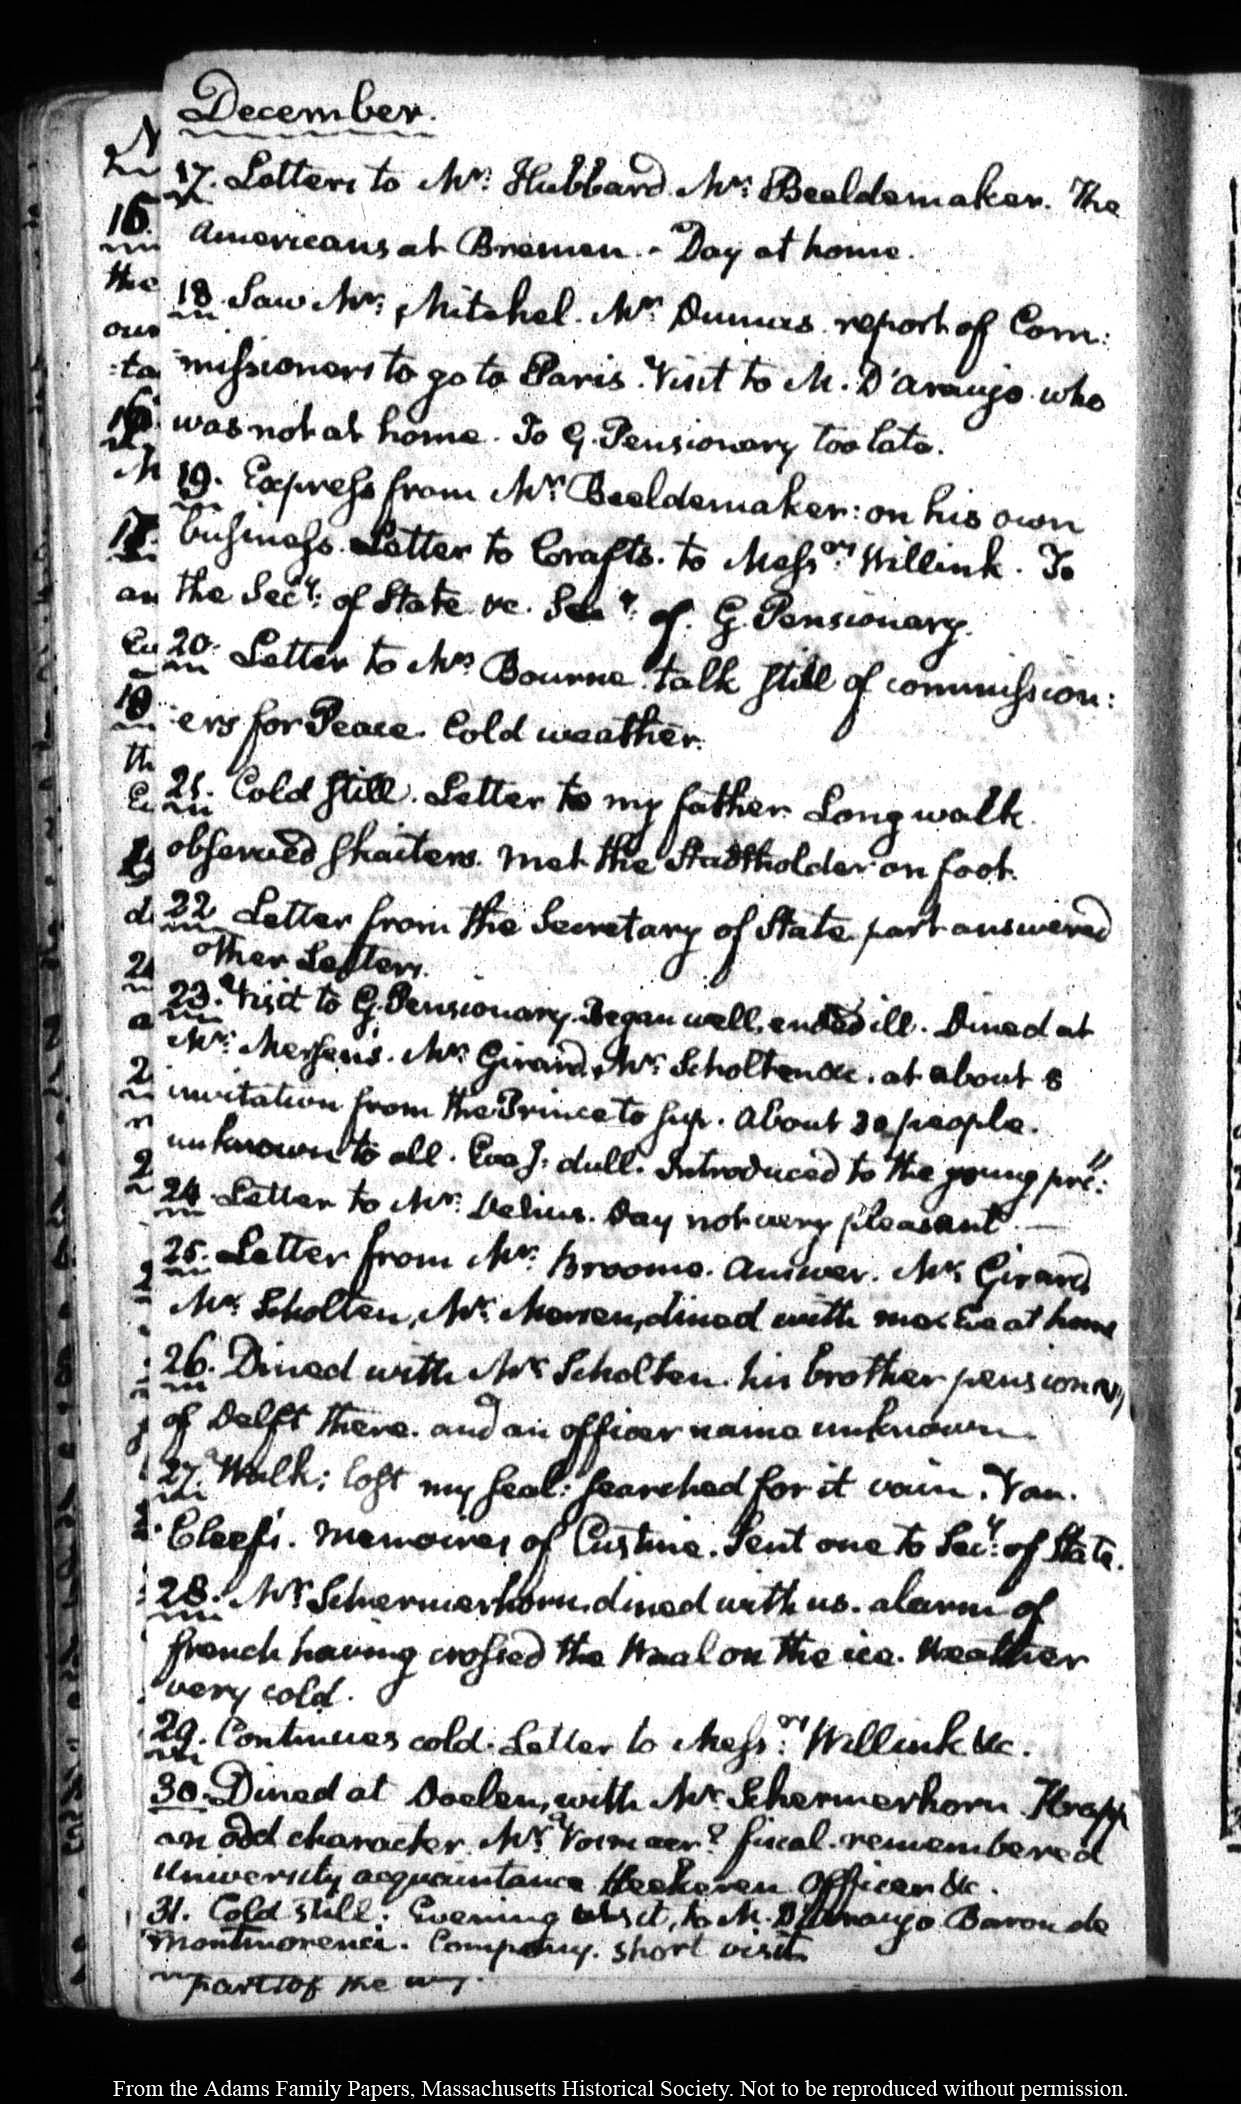 December.
17. Letters to Mr: Hubbard. Mr: Beeldemaker. The
Americans at Bremen. - Day at home.
18. Saw Mr: Mitchel. Mr: Dumas. report of Com:
missioners to go to Paris. Visit to M. D'Araujo who
was not at home. To G. Pensionary too late.
19. Express from Mr: Beeldemaker: on his own
business. Letter to Crafts. to Messrs: Willink. To
the Secy: of State &c. of. G. Pensionary.
20. Letter to Mr: Bourne. talk still of commission:
ers for Peace. Cold weather.
21. Cold still. Letter to my father. Long walk.
observed skaiters. met the Stadtholder on foot.
22. Letter from the Secretary of State part answered
other Letters.
23. Visit to G. Pensionary. Began well, ended ill. Dined at
Mr: Mersen's. Mr: Girard, Mr: Scholten &c. at about 8
invitation from the Prince to sup. about 30 people.
unknown to all. Eveg: dull. Introduced to the young pr:
24. Letter to Mr: Delius. Day not very pleasant. —
25. Letter from Mr: Broome. Answer. Mr: Girard
Mr: Scholten, Mr: Mersen, dined with me. Eve at home
26. Dined with Mr: Scholten. his brother pensionary
of Delft there. and an officer name unknown.
27. Walk; lost my seal: searched for it vain. Van.
Cleef's. Memoires of Custine. Sent one to Secy: of State.
28. Mr: Schermerhorn dined with us. alarm of
french having crossed the Waal on the ice. Weather
very cold.
29. Continues cold. Letter to Messrs: Willink &c.
30. Dined at Doelen, with Mr: Schermerhorn. Krapp
an odd character. Mr: fiscal. remembered
University acquaintance Heekeren Officer &c.
31. Cold still. Evening visit, to M. D'Araujo Baron de
Montmorenci. Company. short visit.
part of the
From the Adams Family Papers, Massachusetts Historical Society. Not to be reproduced without permission.